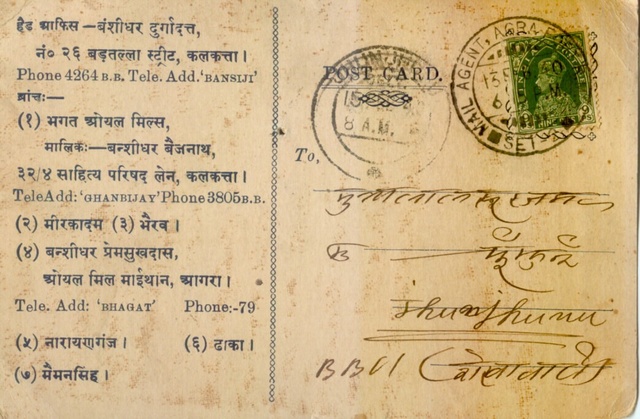 हैड आफिस — बंशीधर दुर्गादत्त,
नं० २६ बड़तल्ला स्ट्रीट, कलकत्ता।
Phone 4264 B.B. Tele. Add. 'BANSIJI'
ब्रांच:—
(१) भगत ओयल मिल्स,
मालिक:— बन्शीधर बैजनाथ,
३२/४ साहित्य परिषद लेन, कलकत्ता।
TeleAdd: 'GHANBIJAY' Phone 3805 B.B.
(२) मीरकादम (३) भैरव।
(४) बन्शीधर प्रेमसुखदास,
ओयल मिल माईथान, आगरा।
Tele. Add: 'BHAGAT' Phone:-79
(५) नारायणगंज। (६) ढाका।
(७) मैमनसिंह।
POST CARD.
MAIL AGENT, AGRA
SET
15
8 A.M.
To,
Jhunjhunu
BBCI